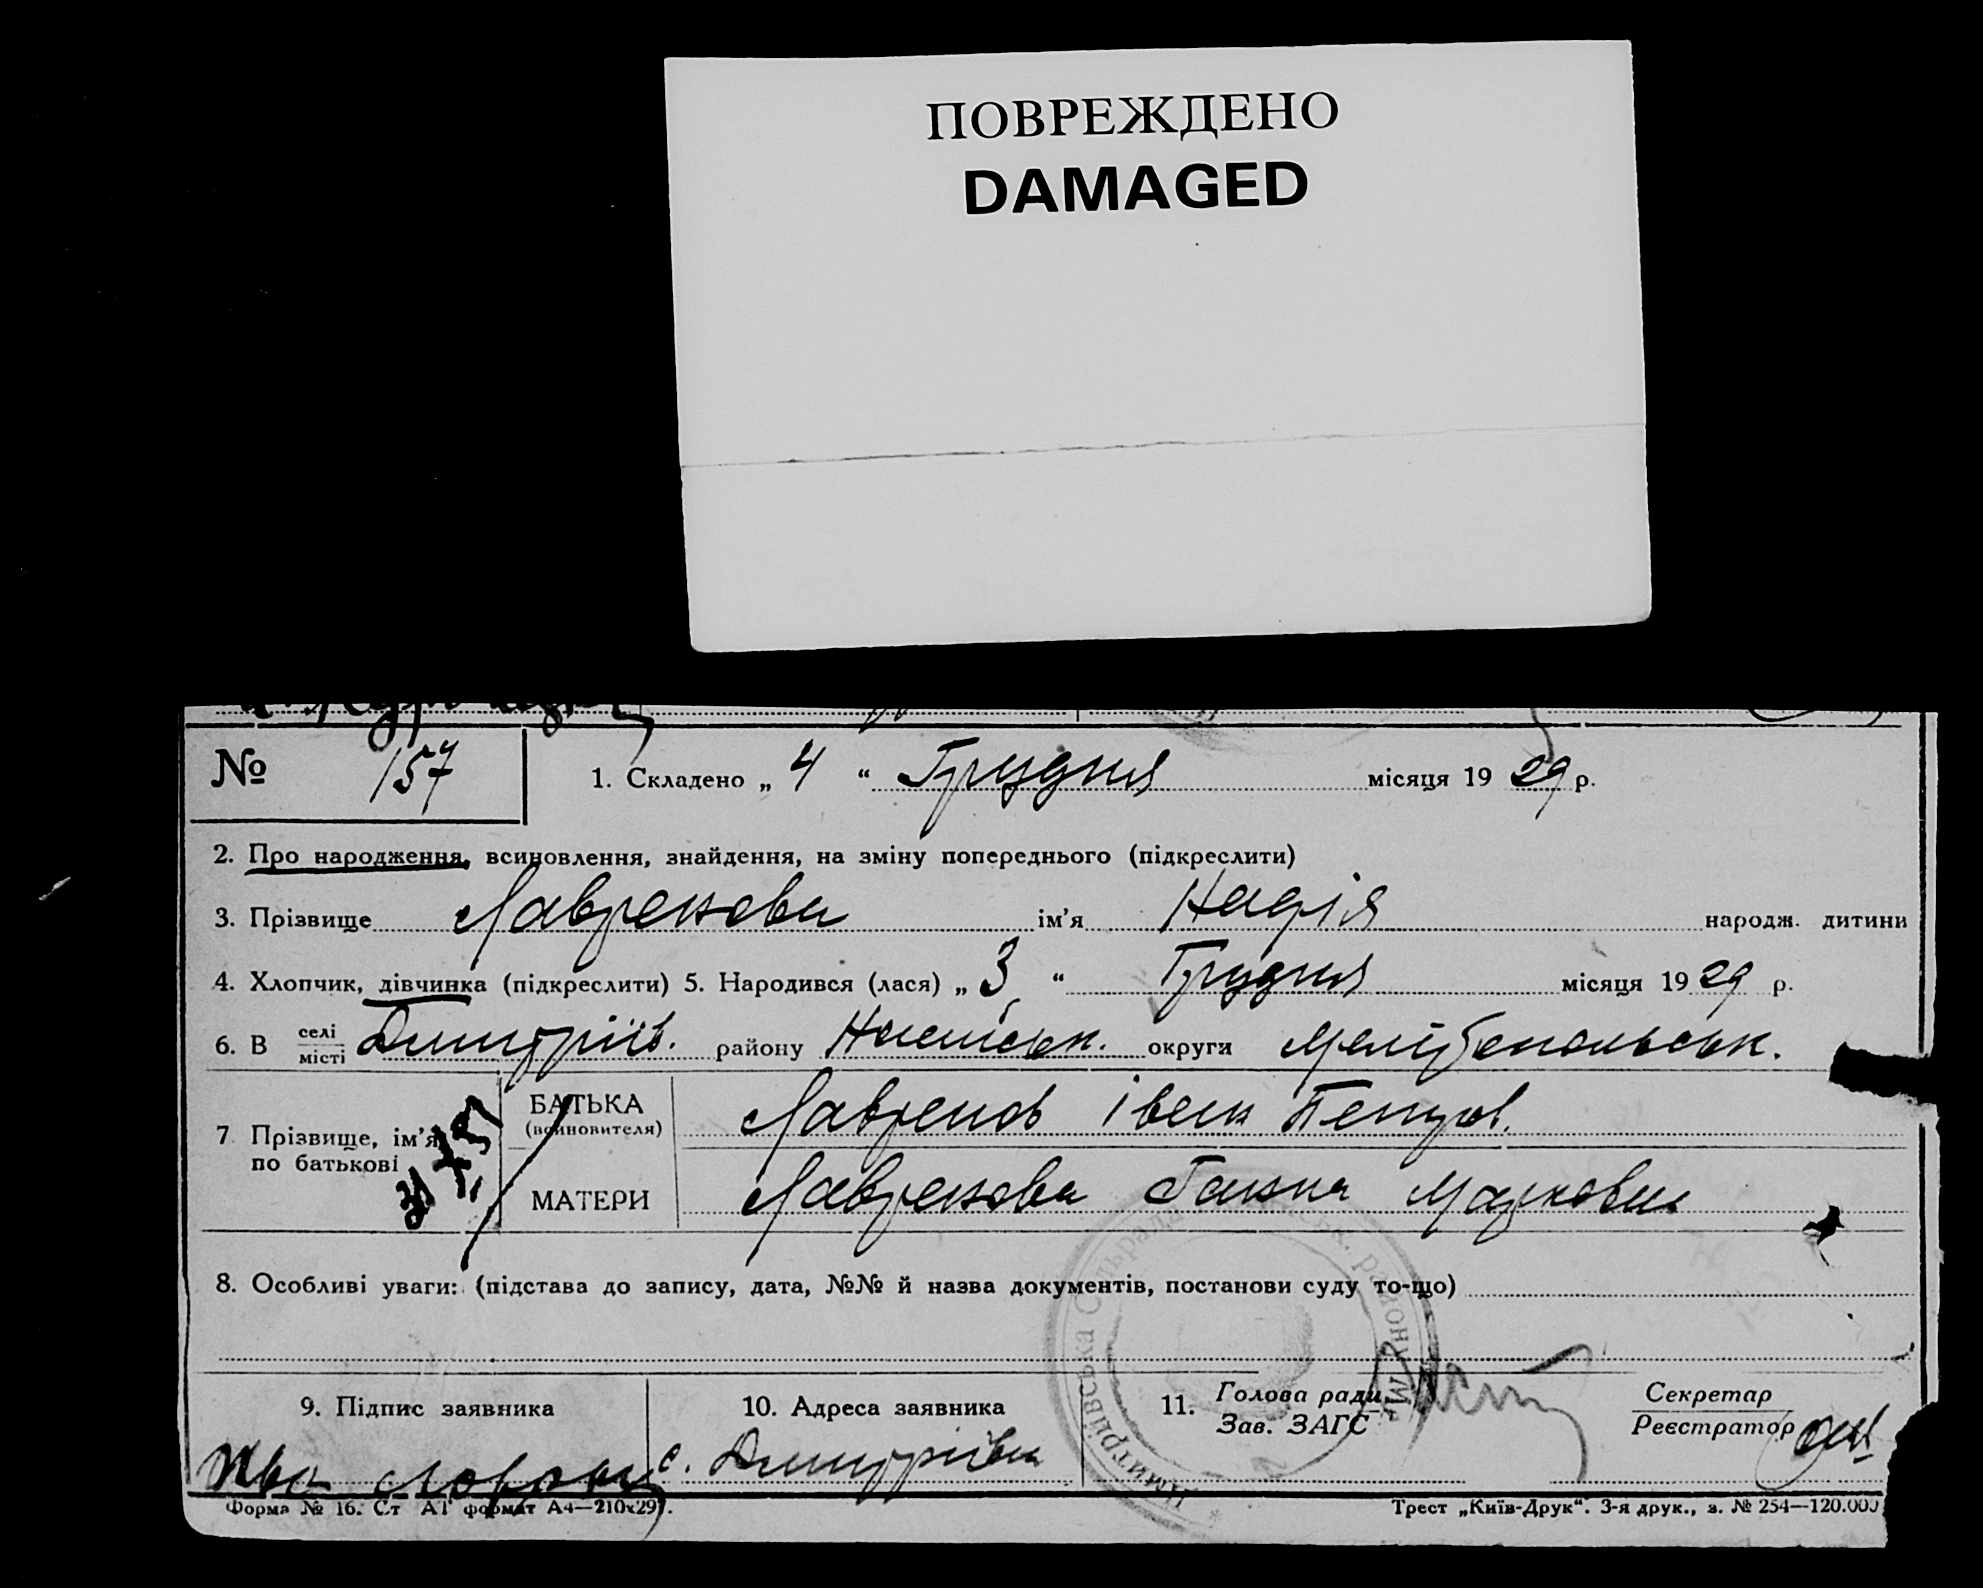 ПОВРЕЖДЕНО
DAMAGED
№ 157
1. Складено „ 4 “ Грудня місяця 19 29 р.
2. Про народження, всиновлення, знайдення, на зміну попереднього (підкреслити)
3. Прізвище Лавренова ім’я Надія народж. дитини
4. Хлопчик, дівчинка (підкреслити) 5. Народився (лася) „ 3 “ Грудня місяця 19 29 р.
6. В селі місті Дмитріїв. району округи Мелітопольськ.
7 Прізвище, ім’я по батькові
БАТЬКА (всиновителя) Лавренов Іван Петров.
МАТЕРИ Лавренова Ганна Маркова
8. Особливі уваги: (підстава до запису, дата, №№ й назва документів, постанови суду то-що)
9. Підпис заявника
10. Адреса заявника
11. Голова ради Зав. ЗАГС
Секретар Реєстратор
с. Дмитріївка
Дмитріївська Сільрада район
Форма № 16. Ст АТ формат А4—210х297.
Трест „Київ-Друк“. 3-я друк., з. № 254—120.000